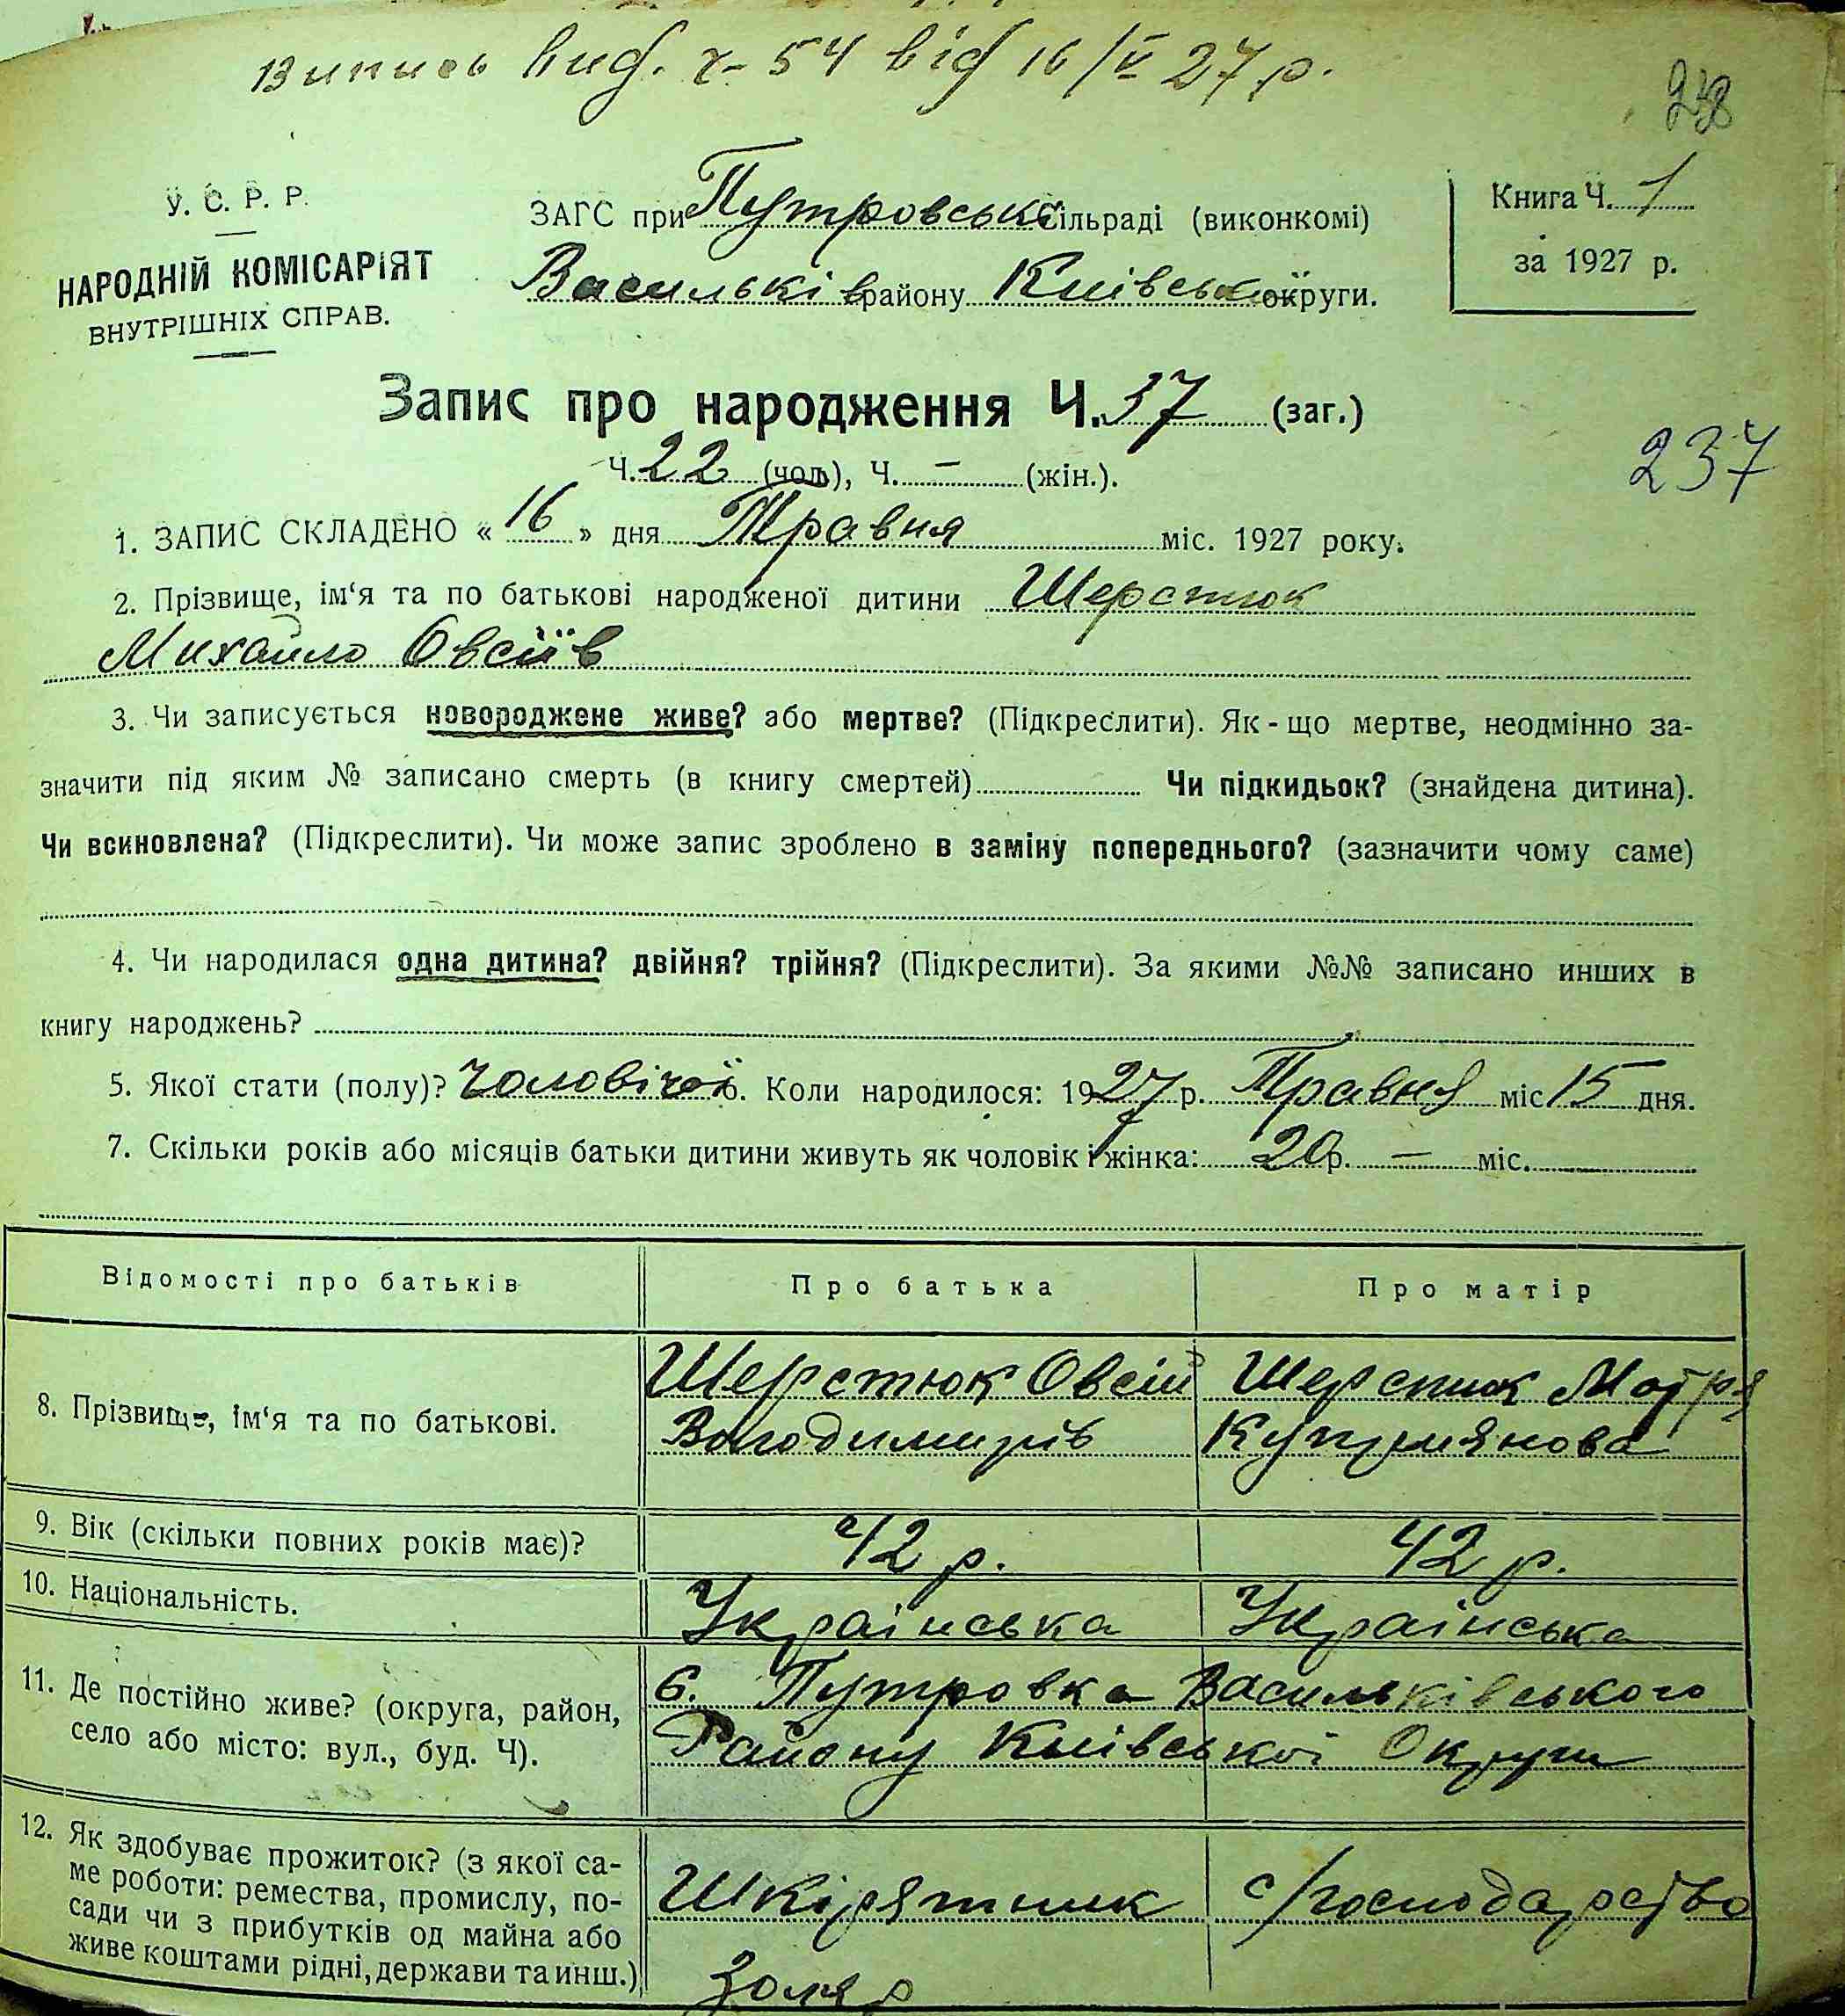 Випись вид. ч- 54 від 16/V 27 р.
238
У. С. Р. Р.
НАРОДНІЙ КОМІСАРІЯТ
ВНУТРІШНІХ СПРАВ.
ЗАГС при Путровські Сільраді (виконкомі)
Васильків району Київської округи.
Книга Ч. 1
за 1927 р.
Запис про народження Ч. 37 (заг.)
Ч. 22 (чол), Ч. — (жін.).
237
1. ЗАПИС СКЛАДЕНО « 16 » дня Травня міс. 1927 року.
2. Прізвище, ім‘я та по батькові народженої дитини Шерстюк
Михайло Овсіїв
3. Чи записується новороджене живе? або мертве? (Підкреслити). Як-що мертве, неодмінно за-
значити під яким № записано смерть (в книгу смертей) Чи підкидьок? (знайдена дитина).
Чи всиновлена? (Підкреслити). Чи може запис зроблено в заміну попереднього? (зазначити чому саме)
4. Чи народилася одна дитина? двійня? трійня? (Підкреслити). За якими №№ записано инших в
книгу народжень?
5. Якої стати (полу)? Чоловічої 6. Коли народилося: 1927 р. Травня міс 15 дня.
7. Скільки років або місяців батьки дитини живуть як чоловік і жінка: 20 р. — міс.
Відомості про батьків
Про батька
Про матір
8. Прізвище, ім‘я та по батькові.
Шерстюк Овсій
Володимирів
Шерстюк Мотря
Купріянова
9. Вік (скільки повних років має)?
42 р.
42 р.
10. Національність.
Українська
Українська
11. Де постійно живе? (округа, район,
село або місто: вул., буд. Ч).
с. Путровка Васильківського
Району Київської Округи
12. Як здобуває прожиток? (з якої са-
ме роботи: ремества, промислу, по-
сади чи з прибутків од майна або
живе коштами рідні, держави та инш.)
Шкірятник
золяр
с/господарство